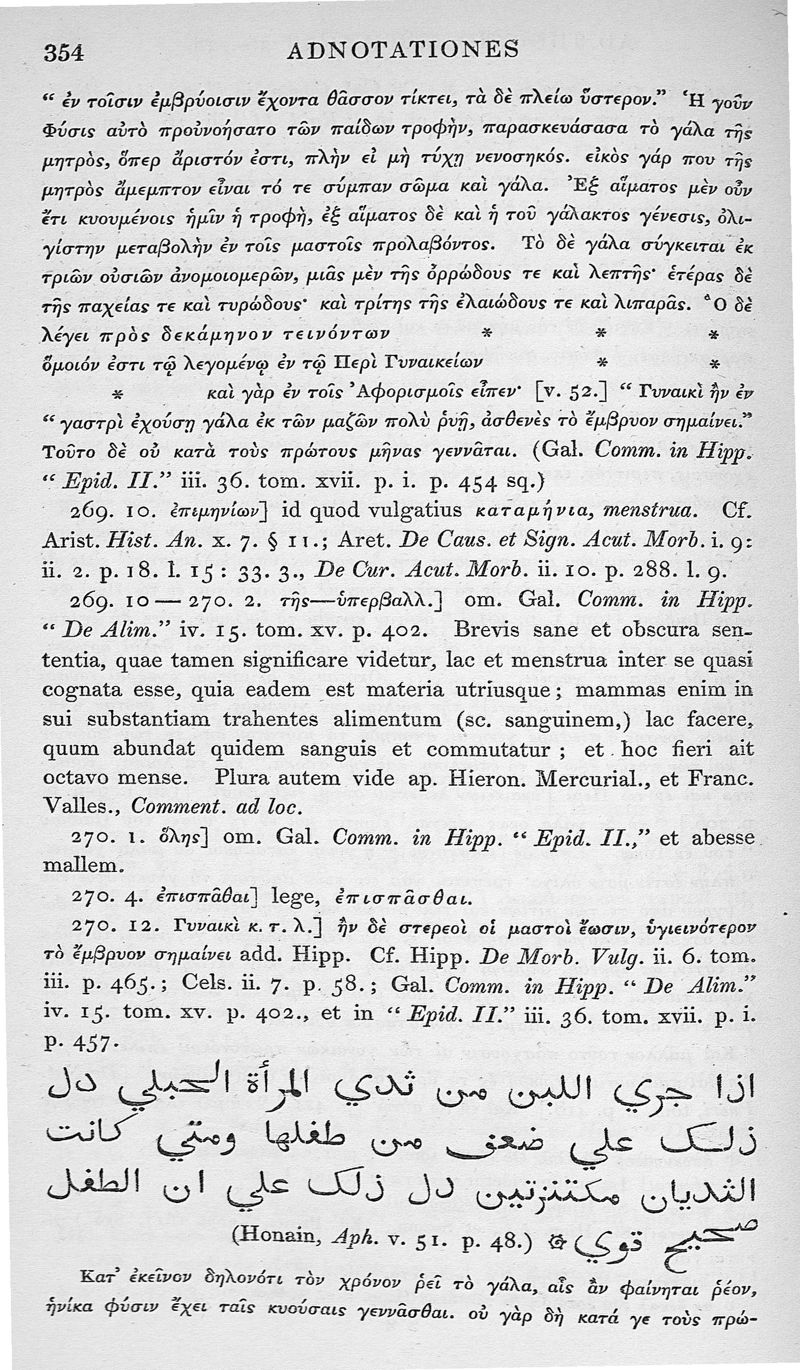 354 ADNOTATIONES
“ ἐν τοῖσιν ἐμβρύοισιν ἔχοντα θᾶσσον τίκτει, τὰ δὲ πλείω ὕστερον.” Ἡ γοῦν
Φύσις αὐτὸ προὐνοήσατο τῶν παίδων τροφὴν, παρασκευάσασα τὸ γάλα τῆς
μητρὸς, ὅπερ ἄριστόν ἐστι, πλὴν εἰ μὴ τύχῃ νενοσηκός. εἰκὸς γάρ που τῆς
μητρὸς ἄμεμπτον εἶναι τό τε σύμπαν σῶμα καὶ γάλα. Ἐξ αἵματος μὲν οὖν
ἔτι κυουμένοις ἡμῖν ἡ τροφὴ, ἐξ αἵματος δὲ καὶ ἡ τοῦ γάλακτος γένεσις, ὀλι-
γίστην μεταβολὴν ἐν τοῖς μαστοῖς προλαβόντος. Τὸ δὲ γάλα σύγκειται ἐκ
τριῶν οὐσιῶν ἀνομοιομερῶν, μιᾶς μὲν τῆς ὀρρώδους τε καὶ λεπτῆς· ἑτέρας δὲ
τῆς παχείας τε καὶ τυρώδους· καὶ τρίτης τῆς ἐλαιώδους τε καὶ λιπαρᾶς. Ὃ δὲ
λέγει πρὸς δεκάμηνον τεινόντων * * *
ὅμοιόν ἐστι τῷ λεγομένῳ ἐν τῷ Περὶ Γυναικείων * *
* καὶ γὰρ ἐν τοῖς Ἀφορισμοῖς εἶπεν· [v. 52.] “ Γυναικὶ ἢν ἐν
“ γαστρὶ ἐχούσῃ γάλα ἐκ τῶν μαζῶν πολὺ ῥυῇ, ἀσθενὲς τὸ ἔμβρυον σημαίνει.”
Τοῦτο δὲ οὐ κατὰ τοὺς πρώτους μῆνας γεννᾶται. (Gal. Comm. in Hipp.
“ Epid. II.” iii. 36. tom. xvii. p. i. p. 454 sq.)
269. 10. ἐπιμηνίων] id quod vulgatius καταμήνια, menstrua. Cf.
Arist. Hist. An. x. 7. § 11.; Aret. De Caus. et Sign. Acut. Morb. i. 9:
ii. 2. p. 18. l. 15 : 33. 3., De Cur. Acut. Morb. ii. 10. p. 288. l. 9.
269. 10 — 270. 2. τῆς—ὑπερβαλλ.] om. Gal. Comm. in Hipp.
“ De Alim.” iv. 15. tom. xv. p. 402. Brevis sane et obscura sen-
tentia, quae tamen significare videtur, lac et menstrua inter se quasi
cognata esse, quia eadem est materia utriusque ; mammas enim in
sui substantiam trahentes alimentum (sc. sanguinem,) lac facere,
quum abundat quidem sanguis et commutatur ; et hoc fieri ait
octavo mense. Plura autem vide ap. Hieron. Mercurial., et Franc.
Valles., Comment. ad loc.
270. 1. ὅλης] om. Gal. Comm. in Hipp. “ Epid. II.,” et abesse
mallem.
270. 4. ἐπισπᾶθαι] lege, ἐπισπᾶσθαι.
270. 12. Γυναικὶ κ. τ. λ.] ἢν δὲ στερεοὶ οἱ μαστοὶ ἔωσιν, ὑγιεινότερον
τὸ ἔμβρυον σημαίνει add. Hipp. Cf. Hipp. De Morb. Vulg. ii. 6. tom.
iii. p. 465. ; Cels. ii. 7. p. 58. ; Gal. Comm. in Hipp. “ De Alim.”
iv. 15. tom. xv. p. 402., et in “ Epid. II.” iii. 36. tom. xvii. p. i.
p. 457.
اذا جري اللبن من ثدي المرأة الحبلي دل
ذلك علي ضعف من طفلها ومتي كانت
الثديان مكتنزتين دل ذلك علي ان الطفل
صحيح قوي ۞ (Honain, Aph. v. 51. p. 48.)
Κατ’ ἐκεῖνον δηλονότι τὸν χρόνον ῥεῖ τὸ γάλα, αἷς ἂν φαίνηται ῥέον,
ἡνίκα φύσιν ἔχει ταῖς κυούσαις γεννᾶσθαι. οὐ γὰρ δὴ κατά γε τοὺς πρώ-